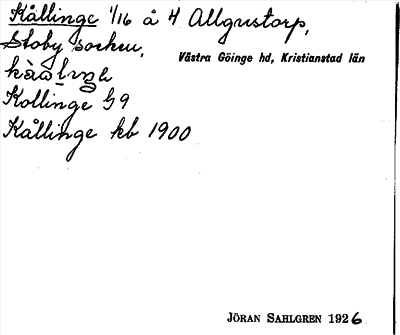 Kållinge 1/16 å 4 Allgustorp,
Stoby socken,
Västra Göinge hd, Kristianstad län
Kollinge G9
Kållinge kb 1900
JÖRAN SAHLGREN 1926